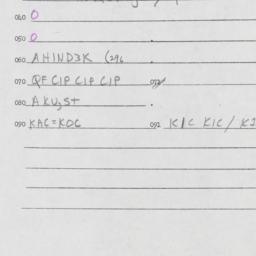 040 0
050 0
060 AHIND3K (296
070 QF CIP CIP CIP
080 AKU,St
090 KAC=KOC 092 KIC KIC / KI